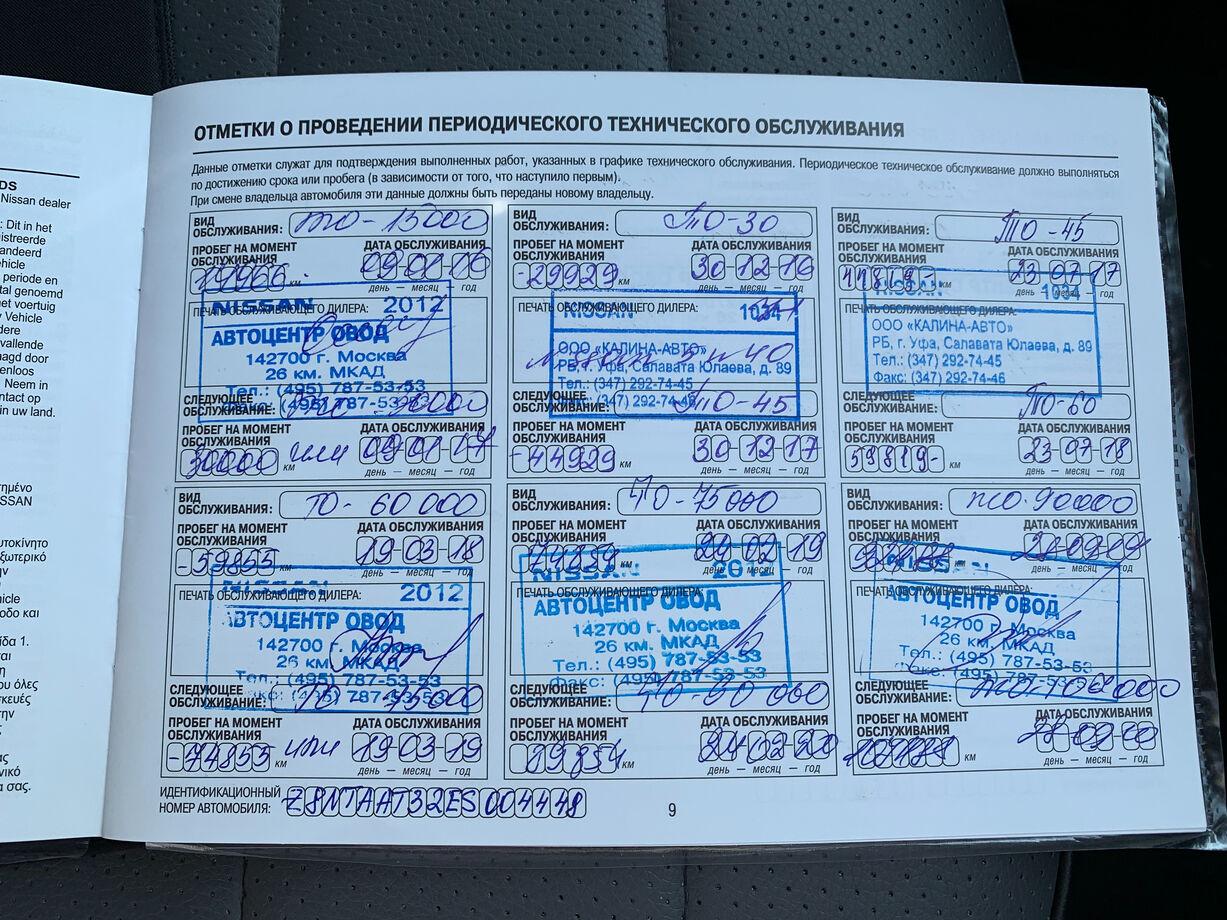 DS
Nissan dealer
: Dit in het
istreerde
andeerd
hicle
periode en
tal genoemd
et voertuig
y Vehicle
dere
vallende
aagd door
enloos
Neem in
ntact op
in uw land.
τημένο
ISSAN
υτοκίνητο
ξωτερικό
ην
hicle
οδο και
ίδα 1.
ται
η
ου όλες
σκευές
την
ς
ας
νικό
α σας.
ОТМЕТКИ О ПРОВЕДЕНИИ ПЕРИОДИЧЕСКОГО ТЕХНИЧЕСКОГО ОБСЛУЖИВАНИЯ
Данные отметки служат для подтверждения выполненных работ, указанных в графике технического обслуживания. Периодическое техническое обслуживание должно выполняться
по достижению срока или пробега (в зависимости от того, что наступило первым).
При смене владельца автомобиля эти данные должны быть переданы новому владельцу.
ВИД
ОБСЛУЖИВАНИЯ: ТО-15000
ПРОБЕГ НА МОМЕНТ ДАТА ОБСЛУЖИВАНИЯ
ОБСЛУЖИВАНИЯ
км 09-01-16
день — месяц — год
NISSAN 2012
ПЕЧАТЬ ОБСЛУЖИВАЮЩЕГО ДИЛЕРА:
АВТОЦЕНТР ОВОД
142700 г. Москва
26 км. МКАД
Тел.: (495) 787-53-53
Факс: (495) 787-53-53
СЛЕДУЮЩЕЕ
ОБСЛУЖИВАНИЕ: ТО-30000
ПРОБЕГ НА МОМЕНТ ДАТА ОБСЛУЖИВАНИЯ
ОБСЛУЖИВАНИЯ
30000 км или 09-01-17
день — месяц — год
ВИД
ОБСЛУЖИВАНИЯ: ТО-30
ПРОБЕГ НА МОМЕНТ ДАТА ОБСЛУЖИВАНИЯ
ОБСЛУЖИВАНИЯ
-29929 км 30-12-16
день — месяц — год
NISSAN 1034
ПЕЧАТЬ ОБСЛУЖИВАЮЩЕГО ДИЛЕРА:
ООО «КАЛИНА-АВТО»
РБ, г. Уфа, Салавата Юлаева, д. 89
Тел.: (347) 292-74-45
Факс: (347) 292-74-46
СЛЕДУЮЩЕЕ
ОБСЛУЖИВАНИЕ: ТО-45
ПРОБЕГ НА МОМЕНТ ДАТА ОБСЛУЖИВАНИЯ
ОБСЛУЖИВАНИЯ
-44929 км 30-12-17
день — месяц — год
ВИД
ОБСЛУЖИВАНИЯ: ТО-45
ПРОБЕГ НА МОМЕНТ ДАТА ОБСЛУЖИВАНИЯ
ОБСЛУЖИВАНИЯ
км 23-07-17
день — месяц — год
NISSAN 1034
ПЕЧАТЬ ОБСЛУЖИВАЮЩЕГО ДИЛЕРА:
ООО «КАЛИНА-АВТО»
РБ, г. Уфа, Салавата Юлаева, д. 89
Тел.: (347) 292-74-45
Факс: (347) 292-74-46
СЛЕДУЮЩЕЕ
ОБСЛУЖИВАНИЕ: ТО-60
ПРОБЕГ НА МОМЕНТ ДАТА ОБСЛУЖИВАНИЯ
ОБСЛУЖИВАНИЯ
59819- км 23-07-18
день — месяц — год
ВИД
ОБСЛУЖИВАНИЯ: ТО-60 000
ПРОБЕГ НА МОМЕНТ ДАТА ОБСЛУЖИВАНИЯ
ОБСЛУЖИВАНИЯ
-59855 км 19-03-18
день — месяц — год
NISSAN 2012
ПЕЧАТЬ ОБСЛУЖИВАЮЩЕГО ДИЛЕРА:
АВТОЦЕНТР ОВОД
142700 г. Москва
26 км. МКАД
Тел.: (495) 787-53-53
Факс: (495) 787-53-53
СЛЕДУЮЩЕЕ
ОБСЛУЖИВАНИЕ: ТО-75000
ПРОБЕГ НА МОМЕНТ ДАТА ОБСЛУЖИВАНИЯ
ОБСЛУЖИВАНИЯ
-74855 км или 19-03-19
день — месяц — год
ВИД
ОБСЛУЖИВАНИЯ: ТО-75000
ПРОБЕГ НА МОМЕНТ ДАТА ОБСЛУЖИВАНИЯ
ОБСЛУЖИВАНИЯ
74854 км 24-02-19
день — месяц — год
NISSAN 2012
ПЕЧАТЬ ОБСЛУЖИВАЮЩЕГО ДИЛЕРА:
АВТОЦЕНТР ОВОД
142700 г. Москва
26 км. МКАД
Тел.: (495) 787-53-53
Факс: (495) 787-53-53
СЛЕДУЮЩЕЕ
ОБСЛУЖИВАНИЕ: ТО-90 000
ПРОБЕГ НА МОМЕНТ ДАТА ОБСЛУЖИВАНИЯ
ОБСЛУЖИВАНИЯ
89854 км 24-02-20
день — месяц — год
ВИД
ОБСЛУЖИВАНИЯ: ТО-90000
ПРОБЕГ НА МОМЕНТ ДАТА ОБСЛУЖИВАНИЯ
ОБСЛУЖИВАНИЯ
км
день — месяц — год
NISSAN
ПЕЧАТЬ ОБСЛУЖИВАЮЩЕГО ДИЛЕРА:
АВТОЦЕНТР ОВОД
142700 г. Москва
26 км. МКАД
Тел.: (495) 787-53-53
Факс: (495) 787-53-53
СЛЕДУЮЩЕЕ
ОБСЛУЖИВАНИЕ:
ПРОБЕГ НА МОМЕНТ ДАТА ОБСЛУЖИВАНИЯ
ОБСЛУЖИВАНИЯ
км
день — месяц — год
ИДЕНТИФИКАЦИОННЫЙ
НОМЕР АВТОМОБИЛЯ: Z8NTAAT32ES004448
9